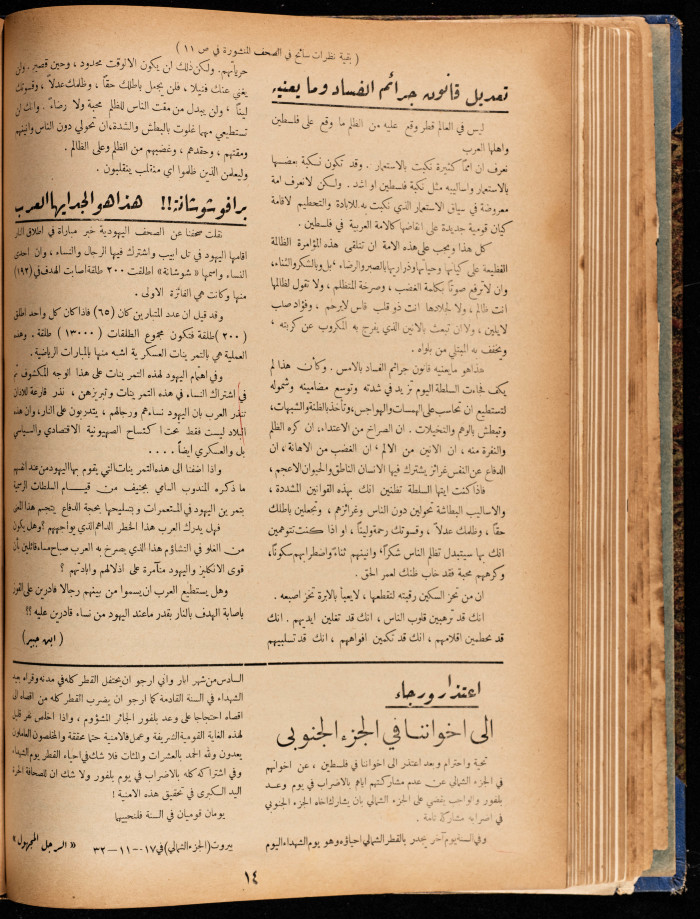 ( بقية نظرات سائح في الصحف المنشورة في ص ١١ )
تعديل قانون جرائم الفساد وما يعنيه
ليس في العالم قطر وقع عليه من الظلم ما وقع على فلسطين
واهلها العرب
نعرف ان امماً كثيرة نكبت بالاستعمار . وقد تكون نكبة بعضها
بالاستعمار واساليبه مثل نكبة فلسطين او اشد . ولكن لا نعرف امة
معروضة في سياق الاستعمار الذي نكبت به للابادة والتحطيم لاقامة
كيان قومية جديدة على انقاضها كلامة العربية في فلسطين .
كل هذا ويجب على هذه الامة ان تتلقى هذه المؤامرة الظالمة
الفظيعة على كيانها وحياتها وذراريها بالصبر والرضاء بل وبالشكر والثناء،
وان لا ترفع صوتاً بكلمة الغضب ، وصرخة المتظلم ، ولا تقول لظالمها
انت ظالم ، ولا لجلادها انت ذو قلب قاس لا يرحم ، وفؤاد صلب
لا يلين ، ولا ان تبعث بالانين الذي يفرج به المكروب عن كربته ،
ويخفف به المبتلي من بلواه .
هذا هو ما يعنيه قانون جرائم الفساد بالامس . وكأن هذا لم
يكف فجاءت السلطة اليوم تزيد في شدته وتوسع مضامينه وشموله
لتستطيع ان تحاسب على الهمسات والهواجس، وتأخذ بالظنة والشبهات،
وتبطش بالوهم والتخيلات . ان الصراخ من الاعتداء، ان كره الظلم
والنفرة منه ، ان الانين من الالم، ان الغضب من الاهانة، ان
الدفاع عن النفس غرائز يشترك فيها الانسان الناطق والحيوان الاعجم،
فاذا كنت ايتها السلطة تظنين انك بهذه القوانين المشددة ،
والاساليب البطاشة تحولين دون الناس وغرائزهم ، وتجعلين باطلك
حقاً ، وظلمك عدلا ، وقسوتك رحمة ولينا ، او اذا كنت تتوهمين
انك بها سيتبدل تظلم الناس شكراً، وانينهم ثناءً واضطرابهم سكوناً،
وكرههم محبة فقد خاب ظنك لعمر الحق .
ان من تحز السكين رقبته لتقطعها ، لا يعبأ بالابرة تحز اصبعه .
انك قد ترهبين قلوب الناس ، انك قد تغلين ايديهم . انك
قد تحطمين اقلامهم ، انك قد تكمين افواههم ، انك قد تسلبينهم
حرياتهم. ولكن ذلك ان يكون الا لوقت محدود ، وحين قصير . ولن
يغني عنك فتيلا ، فلن يجعل باطلك حقاً ، وظلمك عدلاً ، وقسوتك
ليناً ، ولن يبدل من مقت الناس للظلم محبة ولا رضاءً . وانك لن
تستطيعي مهما غلوت بالبطش والشدة، ان تحولي دون الناس وانينهم
ومقتهم ، وحقدهم ، وغضبهم من الظلم وعلى الظالم .
وليعلمن الذين ظلموا اي منقلب ينقلبون .
برافو شوشانة!! هذا هو الجد ايها العرب
نقلت صحفنا عن الصحف اليهودية خبر مباراة في اطلاق النار
اقامها اليهود في تل ابيب واشترك فيها الرجال والنساء ، وان احدى
النساء واسمها « شوشانة » اطلقت ٢٠٠ طلقة اصابت الهدف في (١٩٢)
منها وكانت هي الفائزة الاولى .
وقد قيل ان عدد المتبارين كان (٦٥) فاذا كان كل واحد اطلق
(٢٠٠) طلقة فتكون مجموع الطلقات (١٣٠٠٠) طلقة . وهذه
العملية هي بالتمرينات العسكرية اشبه منها بالمباريات الرياضية .
وفي اهتمام اليهود لهذه التمرينات على هذا الوجه المكشوف ثم
في اشتراك النساء في هذه التمرينات وتبريزهن ، نذر قارعة للاذان
تنذر العرب بان اليهود نساءهم ورجالهم ، يتدربون على النار، وان هذه
البلاد ليست فقط تحت اكتساح الصهيونية الاقتصادي والسياسي
بل والعسكري ايضاً . . . .
واذا اضفنا الى هذه التمرينات التي يقوم بها اليهود من عند انفسهم
ما ذكره المندوب السامي بجنيف من قيام السلطات الرسمية
بتمرين اليهود في المستعمرات وبتسليحها بحجة الدفاع يتجسم هذا الخطر
فهل يدرك العرب هذا الخطر الداهم الذي يواجههم ؟ وهل يكون
من الغلو في التشاؤم هذا الذي يصرخ به العرب صباح مساء قائلين بأن
قوى الانكليز واليهود متآمرة على اذلالهم وابادتهم ؟
وهل يستطيع العرب ان يسموا من بينهم رجالا قادرين على الفوز
باصابة الهدف بالنار بقدر ما عند اليهود من نساء قادرين عليه ؟؟
( ابن جبير )
اعتذار ورجاء
الى اخواننا في الجزء الجنوبي
تحية واحترام وبعد اعتذر الى اخواننا في فلسطين ، عن اخوانهم
في الجزء الشمالي عن عدم مشاركتهم اياهم بالاضراب في يوم وعد
بلفور والواجب يقضي على الجزء الشمالي بان يشارك اخاه الجزء الجنوبي
في اضرابه مشاركة تامة .
وفي السنة يوم آخر يجدر بالقطر الشمالي احياؤه وهو يوم الشهداء اليوم
السادس من شهر ايار واني ارجو ان يحتفل القطر كله في مدنه وقراه بيوم
الشهداء في السنة القادمة كما ارجو ان يضرب القطر كله من اقصاه الى
اقصاه احتجاجا على وعد بلفور الجائر المشؤوم ، واذا اخلص نفر قليل
لهذه الغاية القومية الشريفة وعمل فالامنية حتما محققة والمخلصون العاملون
يعدون ولله الحمد بالعشرات والمئات فلا شك في احياء القطر يوم الشهداء
وفي اشتراكه كله بالاضراب في يوم بلفور ولا شك ان للصحافة الحرة
اليد الكبرى في تحقيق هذه الامنية !
يومان قوميان في السنة فلنحييهما
بيروت (الجزء الشمالي) في ١٧-١١-٣٢ « الرجل المجهول »
١٤